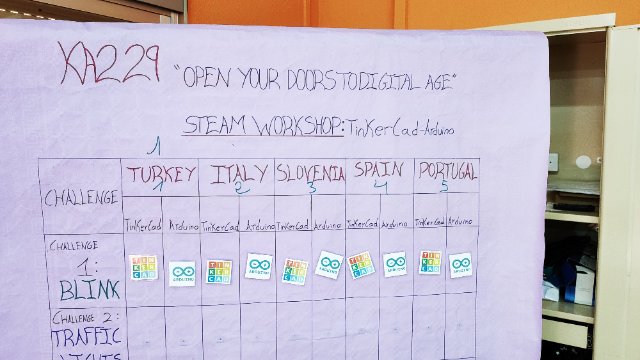 KA229 "OPEN YOUR DOORS TO DIGITAL AGE"
STEAM WORKSHOP: TinKerCad-Arduino
1
CHALLENGE TURKEY ITALY SLOVENIA SPAIN PORTUGAL
1 2 3 4 5
TinKerCad Arduino TinKerCad Arduino TinKerCad Arduino TinKerCad Arduino TinKerCad Arduino
CHALLENGE
1:
BLINK
TIN KER CAD ARDUINO TIN KER CAD ARDUINO TIN KER CAD ARDUINO TIN KER CAD ARDUINO TIN KER CAD ARDUINO
CHALLENGE 2:
TRAFFIC
LIGHTS